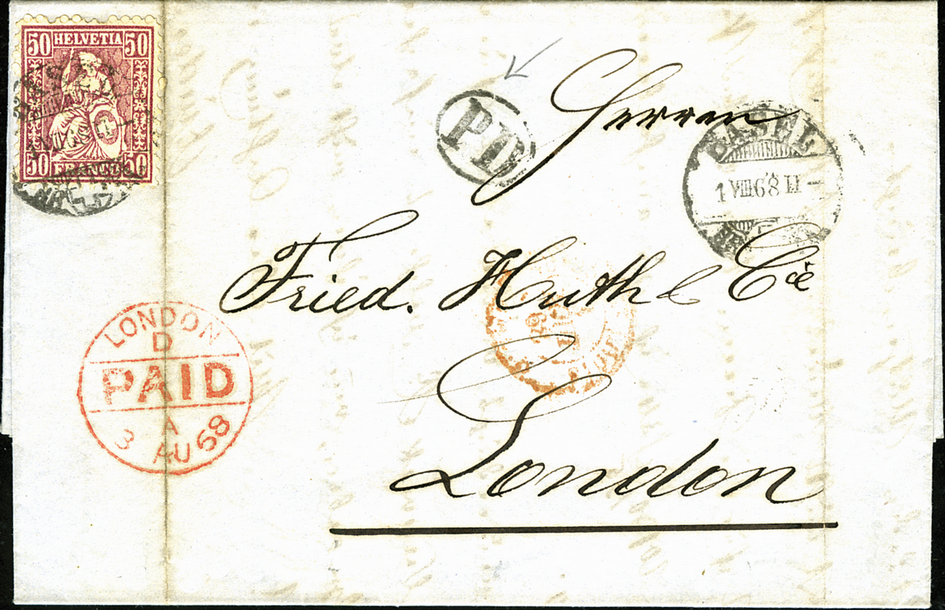 50 HELVETIA 50
50 FRANCO 50
PD
Herren
BASEL
1 VIII 68 11 -
Fried. Huth & Cie
London
LONDON
D
PAID
A
3 AU 68